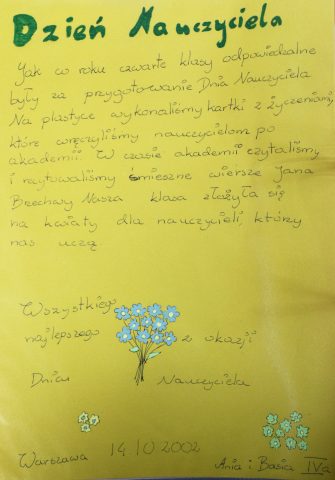 Dzień Nauczyciela
Jak co roku czwarte klasy odpowiedzialne
były za przygotowanie Dnia Nauczyciela
Na plastyce wykonaliśmy kartki z życzeniami,
które wręczyliśmy nauczycielom po
akademii. W czasie akademii czytaliśmy
i recytowaliśmy śmieszne wiersze Jana
Brzechwy Nasza klasa złożyła się
na kwiaty dla nauczycieli, którzy
nas uczą.
Wszystkiego
najlepszego z okazji
Dnia Nauczyciela
Warszawa 14.10.2002
Ania i Basia IVa